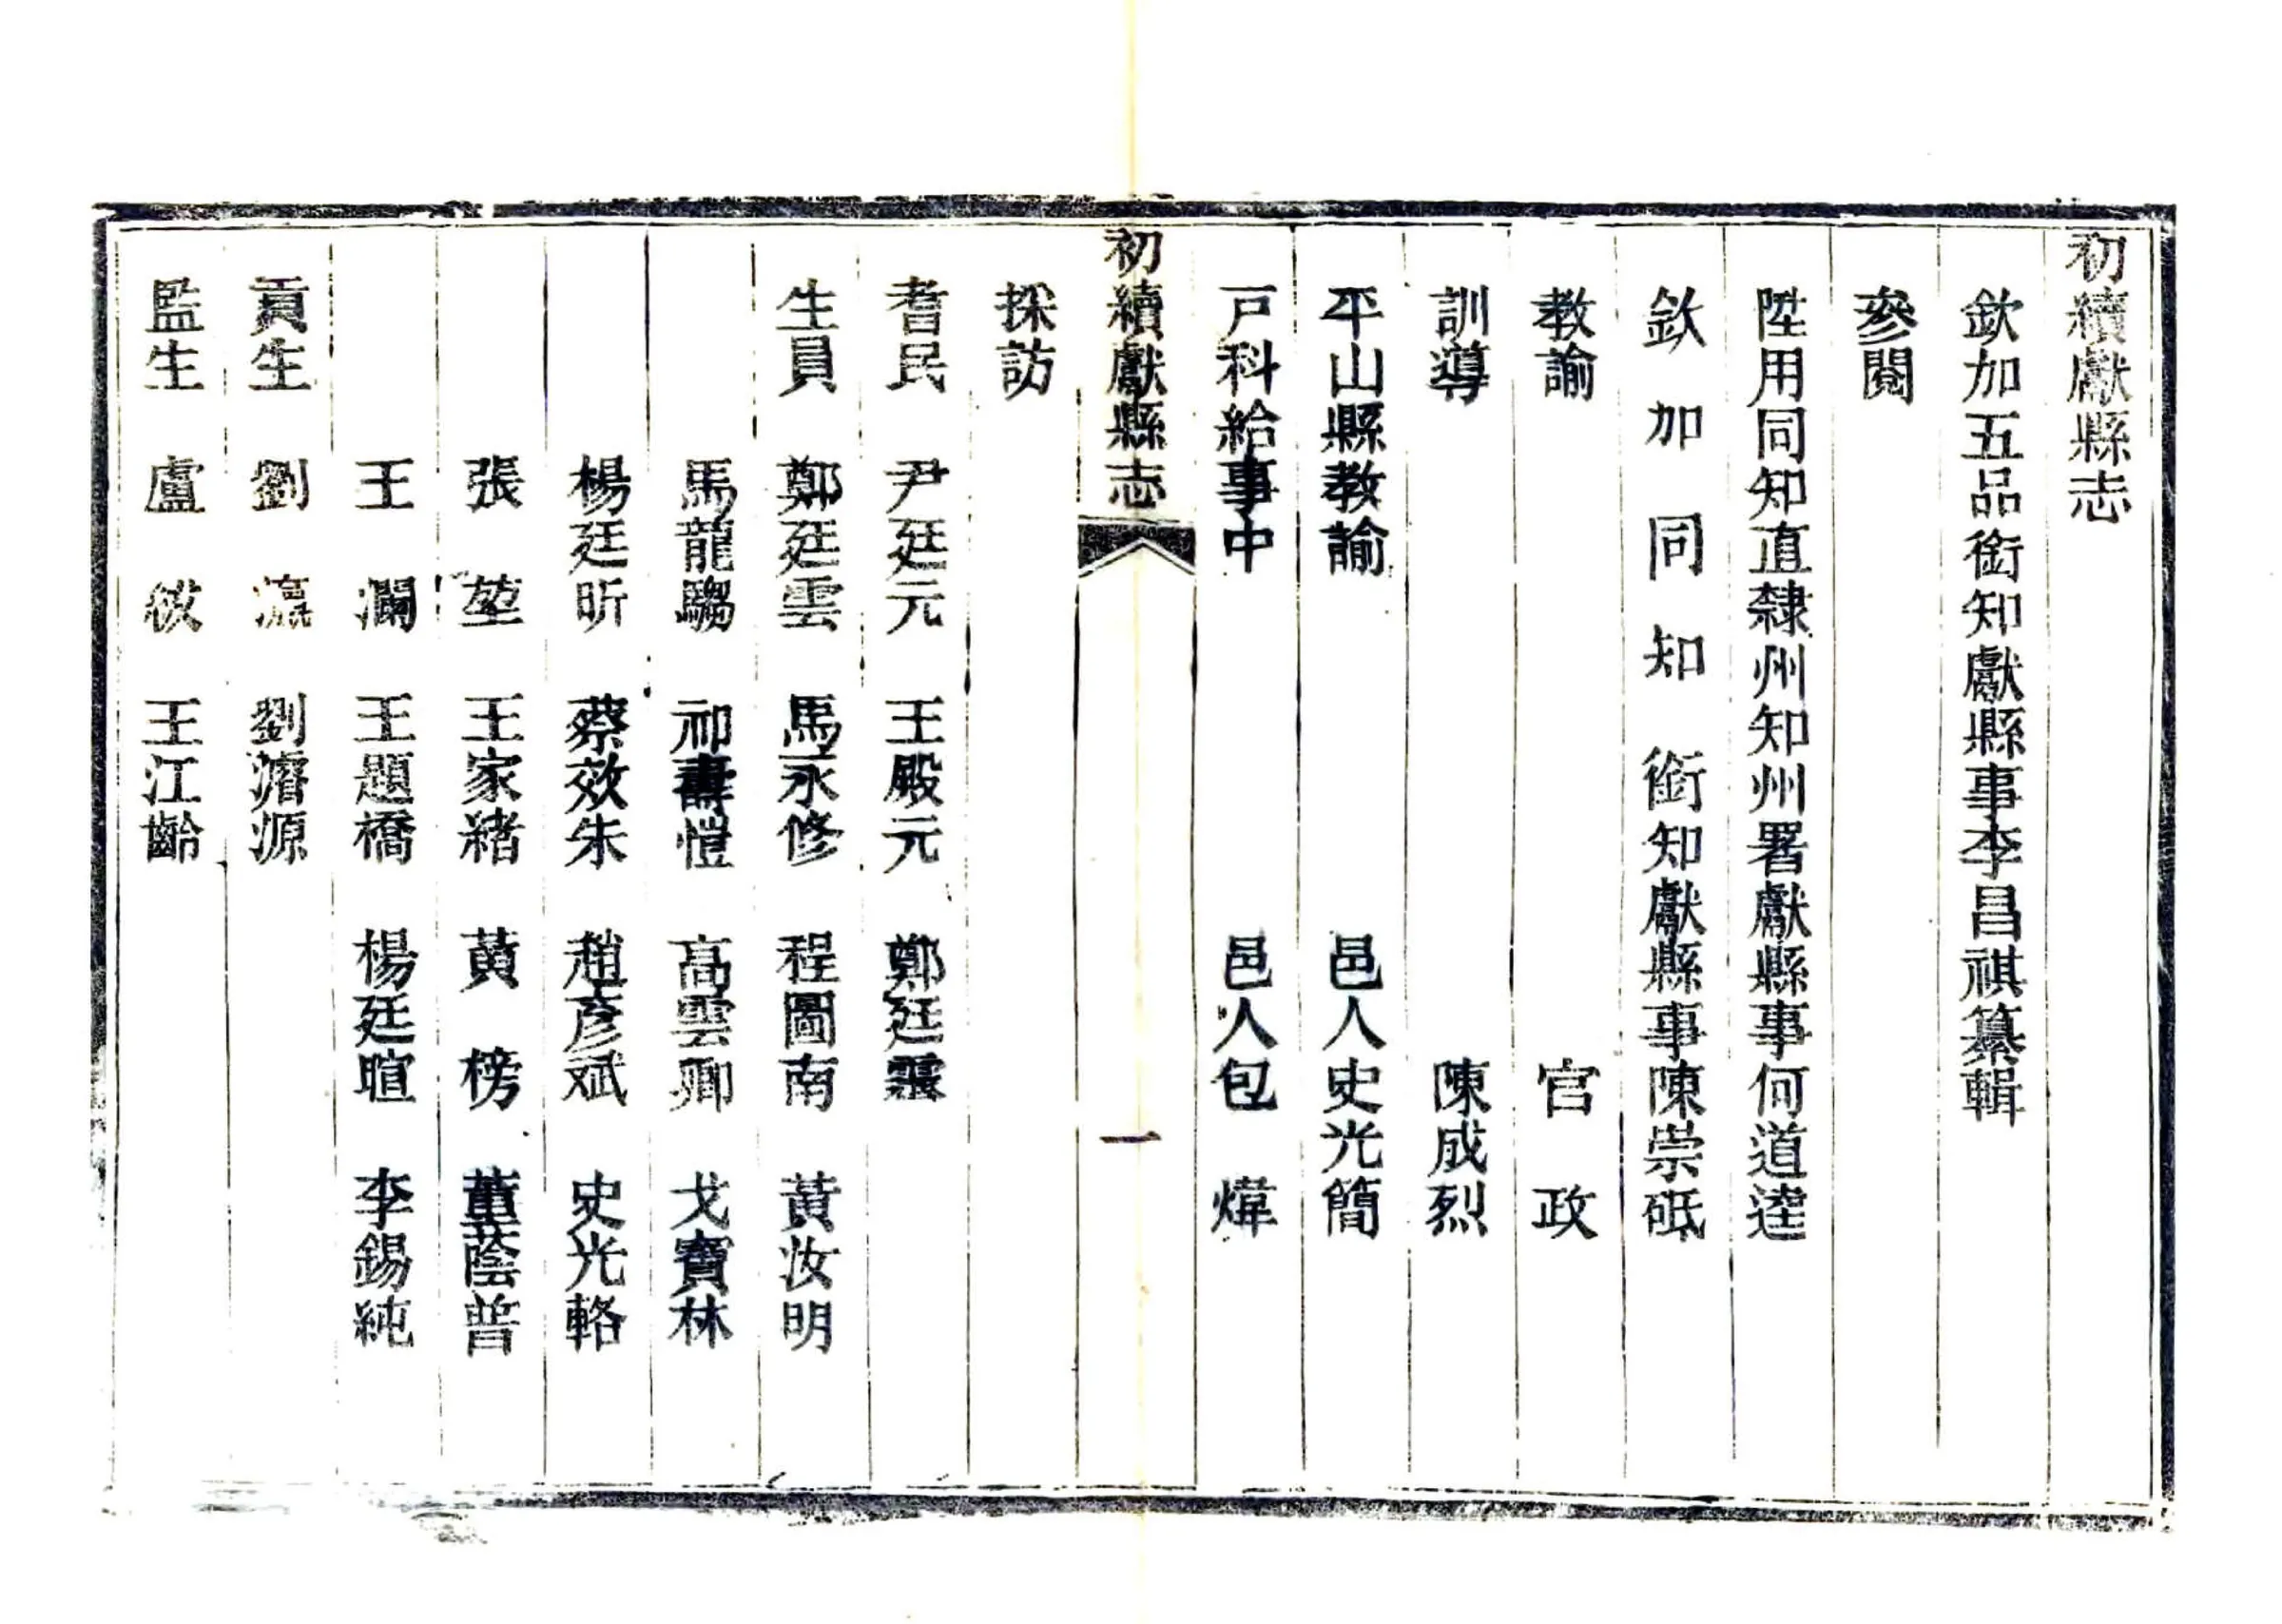 初續獻縣志
欽加五品銜知獻縣事李昌祺纂輯
參閱
陞用同知直隸州知州署獻縣事何道達
欽加同知銜知獻縣事陳崇砥
教諭 宮政
訓導 陳成烈
平山縣教諭 邑人史光簡
戸科給事中 邑人包煒
初續獻縣志 一
採訪
耆民 尹廷元 王殿元 鄭廷
生員 鄭廷雲 馬永修 程圖南 黃汝明
馬龍騶 祁壽愷 高雲卿 戈寶林
楊廷昕 蔡效朱 趙彥斌 史光輅
張堃 王家緒 黃榜 董蔭普
王瀾 王題橋 楊廷暄 李錫純
貢生 劉瀛 劉濬源
監生 盧紱 王江齡